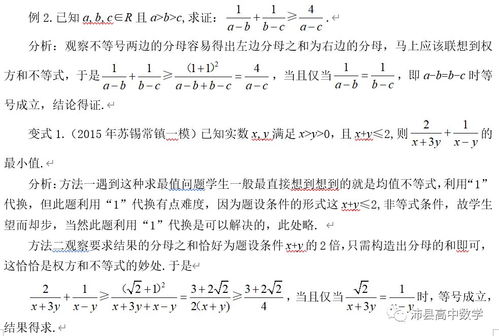 例 2.已知 a,b,c∈R 且 a>b>c,求证：1/(a-b) + 1/(b-c) ≥ 4/(a-c) .
分析：观察不等号两边的分母容易得出左边分母之和为右边的分母，马上应该联想到权
方和不等式，于是 1/(a-b) + 1/(b-c) ≥ (1+1)²/(a-b+b-c) = 4/(a-c) ，当且仅当 1/(a-b) = 1/(b-c) ，即 a-b=b-c 时等
号成立，结论得证.
变式 1.（2015 年苏锡常镇一模）已知实数 x,y 满足 x>y>0，且 x+y≤2,则 2/(x+3y) + 1/(x-y) 的
最小值.
分析：方法一遇到这种求最值问题学生一般最直接想到想到的就是均值不等式，利用“1”
代换，但此题利用“1”代换有点难度，因为题设条件的形式这 x+y≤2,非等式条件，故学生
望而却步，当然此题利用“1”代换是可以解决的，此处略.
方法二观察要求结果的分母之和恰好为题设条件 x+y 的 2 倍，只需构造出分母的和即可，
这恰恰是权方和不等式的妙处.于是
2/(x+3y) + 1/(x-y) ≥ (√2+1)²/(x+3y+x-y) = (3+2√2)/(2(x+y)) ≥ (3+2√2)/4 ，当且仅当 √2/(x+3y) = 1/(x-y) 时，等号成立，
结果得求.
沛县高中数学